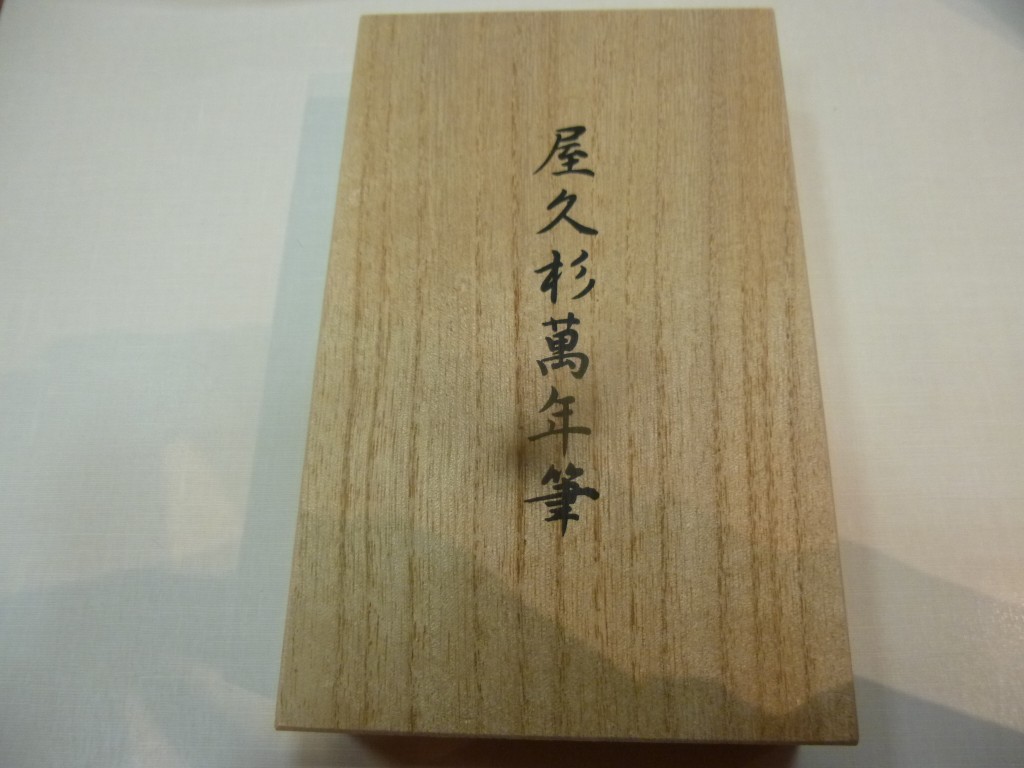 屋久杉萬年筆